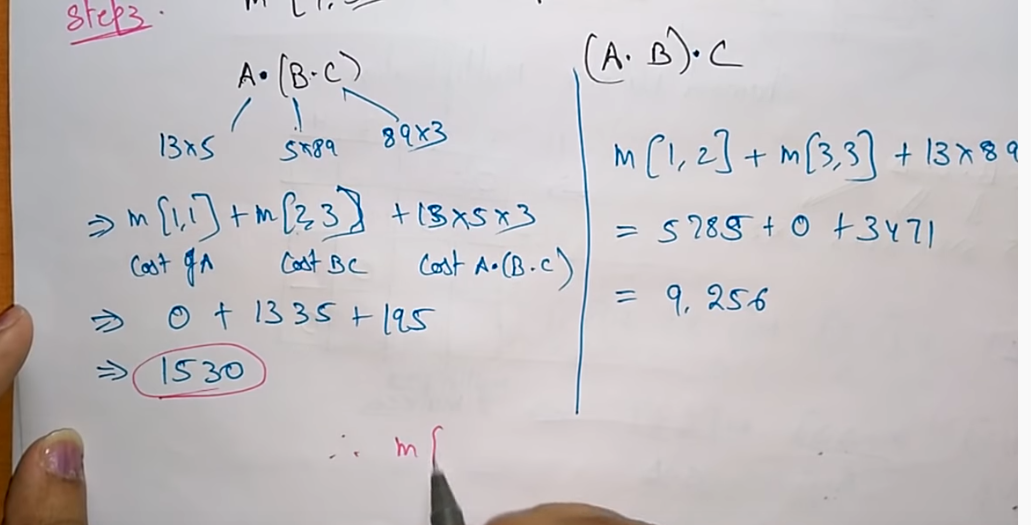 Step3.
m [1,
A•(B·C)
13×5 5×89 89×3
⇒ m[1,1] + m[2,3] + 13×5×3
Cost of A Cost BC Cost A•(B·C)
⇒ 0 + 1335 + 195
⇒ 1530
(A·B)·C
m[1,2] + m[3,3] + 13×89
= 5785 + 0 + 3471
= 9,256
∴ m[